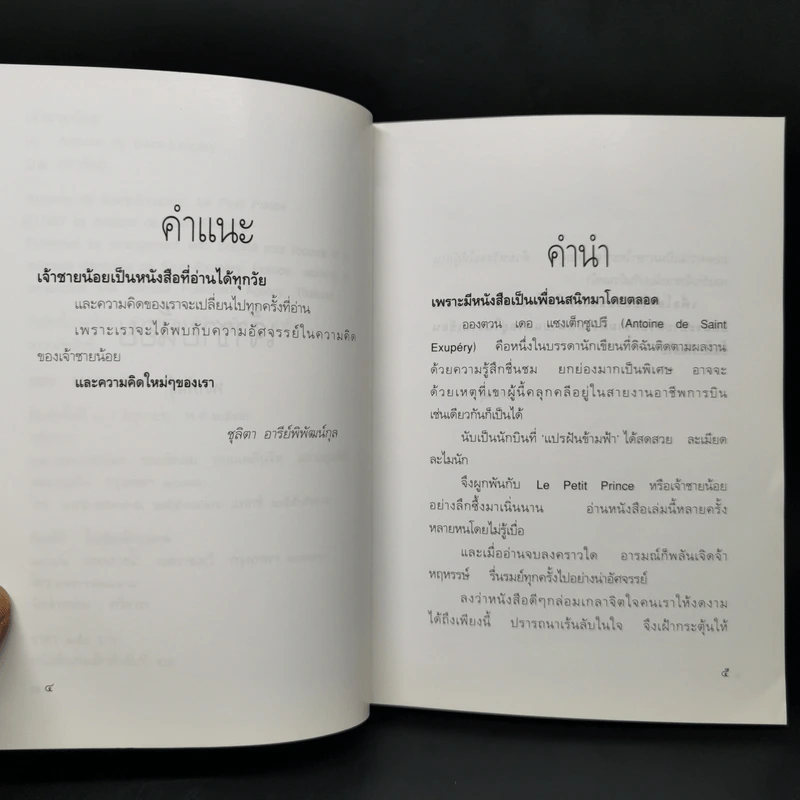 คำแนะ
เจ้าชายน้อยเป็นหนังสือที่อ่านได้ทุกวัย
และความคิดของเราจะเปลี่ยนไปทุกครั้งที่อ่าน
เพราะเราจะได้พบกับความอัศจรรย์ในความคิด
ของเจ้าชายน้อย
และความคิดใหม่ๆของเรา
ชุลิตา อารีย์พิพัฒน์กุล
๔
คำนำ
เพราะมีหนังสือเป็นเพื่อนสนิทมาโดยตลอด
อองตวน เดอ แซงเต็กซูเปรี (Antoine de Saint
Exupéry) คือหนึ่งในบรรดานักเขียนที่ดิฉันติดตามผลงาน
ด้วยความรู้สึกชื่นชม ยกย่องมากเป็นพิเศษ อาจจะ
ด้วยเหตุที่เขาผู้นี้คลุกคลีอยู่ในสายงานอาชีพการบิน
เช่นเดียวกันก็เป็นได้
นับเป็นนักบินที่ 'แปรฝันข้ามฟ้า' ได้สดสวย ละเมียด
ละไมนัก
จึงผูกพันกับ Le Petit Prince หรือเจ้าชายน้อย
อย่างลึกซึ้งมาเนิ่นนาน อ่านหนังสือเล่มนี้หลายครั้ง
หลายหนโดยไม่รู้เบื่อ
และเมื่ออ่านจบลงคราวใด อารมณ์ก็พลันเจิดจ้า
หฤหรรษ์ รื่นรมย์ทุกครั้งไปอย่างน่าอัศจรรย์
ลงว่าหนังสือดีๆกล่อมเกลาจิตใจคนเราให้งดงาม
ได้ถึงเพียงนี้ ปรารถนาเร้นลับในใจ จึงเฝ้ากระตุ้นให้
๕